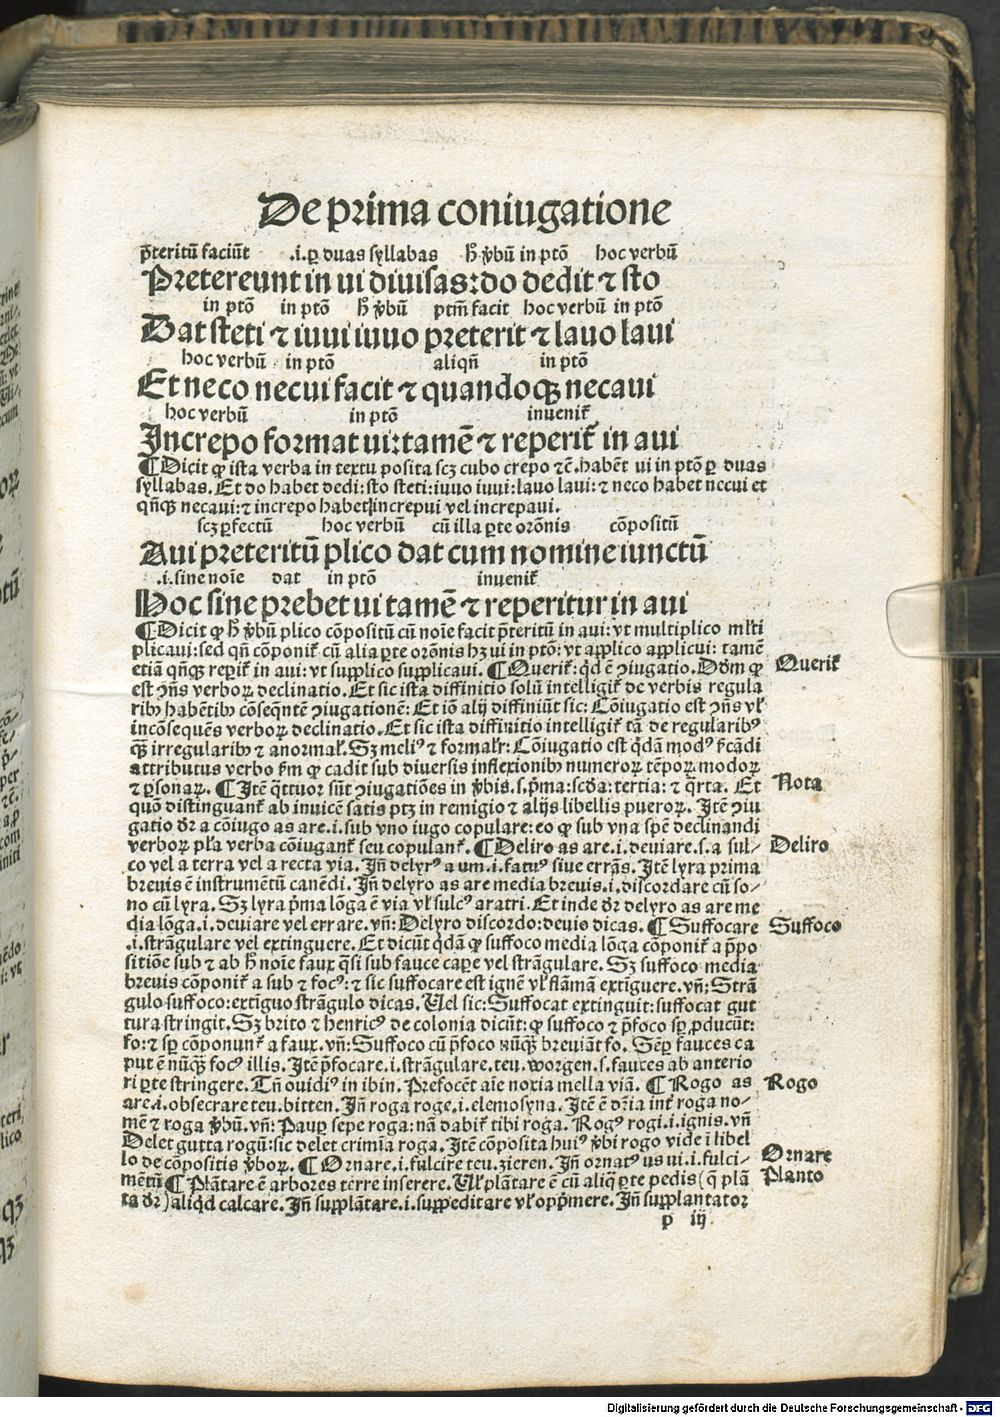 De prima coniugatione
p̄teritū faciūt .i. ꝑ duas syllabas h̄ v̄bū in ptō hoc verbū
Pretereunt in ui diuisas: do dedit ⁊ sto
in ptō in ptō h̄ v̄bū ptm̄ facit hoc verbū in ptō
Dat steti ⁊ iuui iuuo preterit ⁊ lauo laui
hoc verbū in ptō aliqñ in ptō
Et neco necui facit ⁊ quandoqꝫ necaui
hoc verbū in ptō inuenit᷑
Increpo format ui: tamē ⁊ reperit᷑ in aui
¶ Dicit ꝙ ista verba in textu posita scꝫ cubo crepo ⁊c̄. habēt ui in ptō ꝑ duas
syllabas. Et do habet dedi: sto steti: iuuo iuui: lauo laui: ⁊ neco habet necui et
qñqꝫ necaui: ⁊ increpo habet increpui vel increpaui.
scꝫ ꝑfectū hoc verbū cū illa ꝑte orōnis cōpositū
Aui preteritū plico dat cum nomine iunctū
.i. sine noīe dat in ptō inuenit᷑
Hoc sine prebet ui tamē ⁊ reperitur in aui
¶ Dicit ꝙ h̄ v̄bū plico cōpositū cū noīe facit p̄teritū in aui: vt multiplico ml̄ti
plicaui: sed qñ cōponit᷑ cū alia ꝑte orōnis hꝫ ui in ptō: vt applico applicui: tamē
etiā qñqꝫ reꝑit᷑ in aui: vt supplico supplicaui. ¶ Querit᷑: qd̄ ē ꝯiugatio. Dōm ꝙ
Querit᷑
est ꝯn̄s verboꝝ declinatio. Et sic ista diffinitio solū intelligit᷑ de verbis regula
ribꝰ habētibꝰ cōseqn̄tē ꝯiugationē: Et iō alij diffiniūt sic: Cōiugatio est ꝯn̄s vl̄
incōsequēs verboꝝ declinatio. Et sic ista diffinitio intelligit᷑ tā de regularibꝰ
qꝫ irregularibꝰ ⁊ anormal᷑. Sꝫ meliꝰ ⁊ formal᷑r: Cōiugatio est qdā modꝰ p̄cādi
attributus verbo ẜm ꝙ cadit sub diuersis inflexionibꝰ numeroꝝ tēpoꝝ modoꝝ
⁊ ꝑsonaꝝ. ¶ Itē qttuor sūt ꝯiugatiōes in v̄bis. s. p̄ma: scd̄a: tertia: ⁊ q̄rta. Et
Nota
quō distinguant᷑ ab inuicē satis ptꝫ in remigio ⁊ alijs libellis pueroꝝ. Itē ꝯiu
gatio dr̄ a cōiugo as are. i. sub vno iugo copulare: eo ꝙ sub vna spē declinandi
verboꝝ pl̄a verba cōiugant᷑ seu copulant᷑. ¶ Deliro as are. i. deuiare. s. a sul⸗
Deliro
co vel a terra vel a recta via. Iñ delyrꝰ a um. i. fatuꝰ siue errās. Itē lyra prima
breuis ē instrumētū canēdi. Iñ delyro as are media breuis. i. discordare cū so⸗
no cū lyra. Sꝫ lyra p̄ma lōga ē via vl̄ sulcꝰ aratri. Et inde dr̄ delyro as are me
dia lōga. i. deuiare vel errare. vn̄: Delyro discordo: deuio dicas. ¶ Suffocare
Suffoco
.i. strāgulare vel extinguere. Et dicūt qdā ꝙ suffoco media lōga cōponit᷑ a p̄po
sitiōe sub ⁊ ab h̄ noīe faux qsi sub fauce capere vel strāgulare. Sꝫ suffoco media
breuis cōponit᷑ a sub ⁊ focꝰ: ⁊ sic suffocare est ignē vl̄ flāmā extiguere. vn̄: Strā
gulo suffoco: extiguo strāgulo dicas. Uel sic: Suffocat extinguit: suffocat gut
tura stringit. Sꝫ brito ⁊ henricꝰ de colonia dicūt: ꝙ suffoco ⁊ p̄foco sꝑ ꝓducūt:
fo: ⁊ sꝑ cōponunt᷑ a faux. vn̄: Suffoco cū p̄foco nūqꝫ breuiāt fo. Sēꝑ fauces ca
put ē nūqꝫ focꝰ illis. Itē p̄focare. i. strāgulare. teu. worgen. s. fauces ab anterio
ri ꝑte stringere. Tn̄ ouidiꝰ in ibin. Prefocēt aīe noxia mella viā. ¶ Rogo as
Rogo
are. i. obsecrare teu. bitten. Iñ roga roge. i. elemosyna. Itē ē dr̄ia int᷑ roga no⸗
mē ⁊ roga v̄bū. vn̄: Pauꝑ sepe roga: nā dabit᷑ tibi roga. Rogꝰ rogi. i. ignis. vn̄
Delet gutta rogū: sic delet crimīa roga. Itē cōposita huiꝰ v̄bi rogo vide ī libel
lo de cōpositis v̄boꝝ. ¶ Ornare. i. fulcire teu. zieren. Iñ ornatꝰ us ui. i. fulci⸗
Ornare
mētū ¶ Plātare ē arbores terre inserere. Ul̄ plātare ē cū aliq ꝑte pedis (q plā
Planto
ta dr̄) aliqd calcare. Iñ supplātare. i. suppeditare vl̄ opp̄mere. Iñ supplantator
p iij
Digitalisierung gefördert durch die Deutsche Forschungsgemeinschaft - DFG